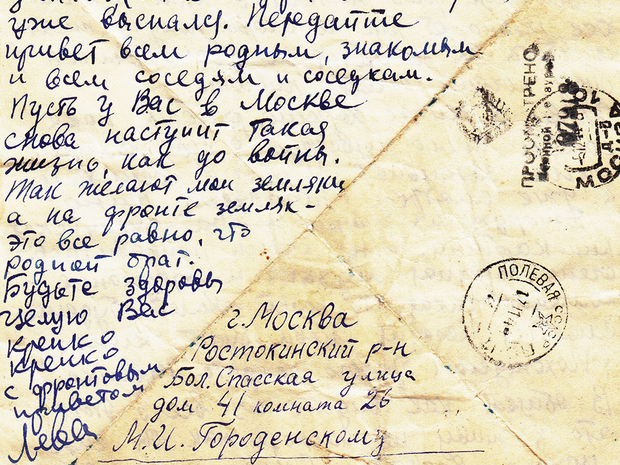 уже выспался. Передайте
привет всем родным, знакомым
и всем соседям и соседкам.
Пусть у Вас в Москве
снова наступит такая
жизнь, как до войны.
Так желают мои земляки,
а на фронте земляк –
это все равно, что
родной брат.
Будьте здоровы
Целую Вас
крепко
крепко
с фронтовым
приветом
Лева
г. Москва
Ростокинский р-н
Бол. Спасская улица
дом 41 комната 26
М.И. Городенскому
ПРОСМОТРЕНО
Военной Цензурой
МОС
ПОЛЕВАЯ